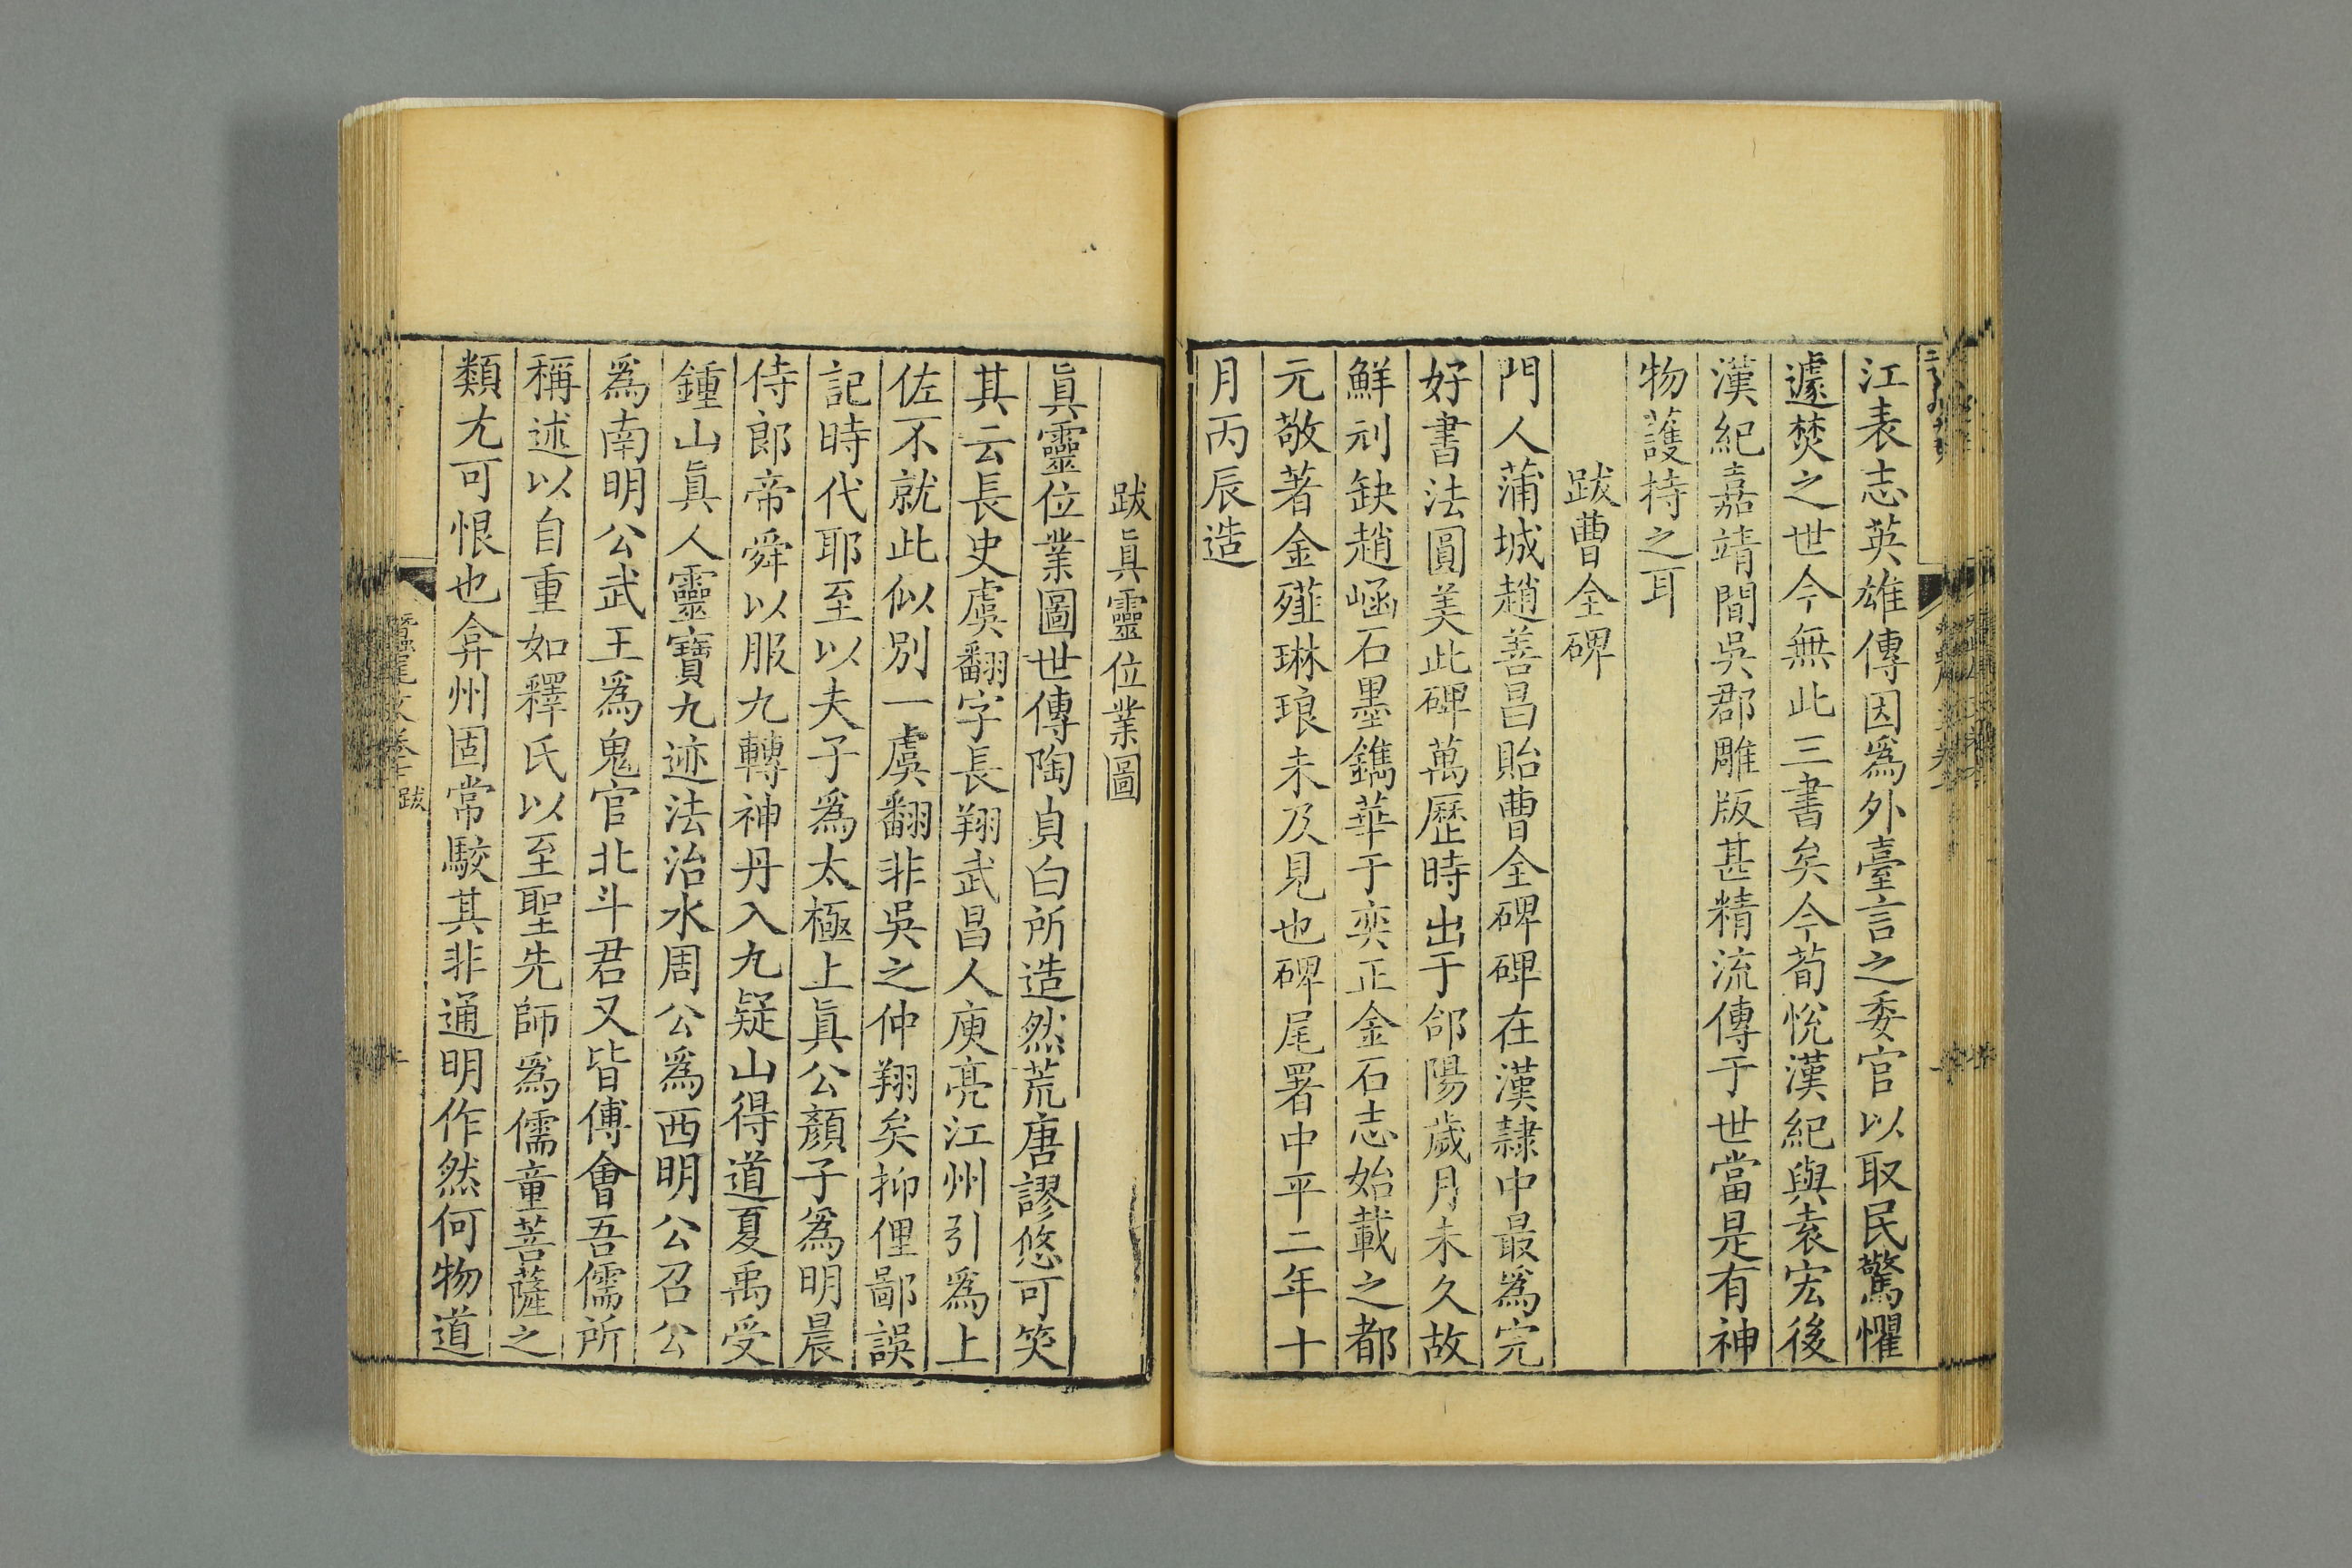 江表志英雄傳因爲外臺言之委官以取民驚懼
遽焚之世今無此三書矣今荀悅漢紀與袁宏後
漢紀嘉靖間吳郡雕版甚精流傳于世當是有神
物護持之耳
跋曹全碑
門人蒲城趙善昌貽曹全碑碑在漢隷中最爲完
好書法圓美此碑萬歷時出于郃陽歲月未久故
鮮刓缺趙崡石墨鐫華于奕正金石志始載之都
元敬著金薤琳琅未及見也碑尾署中平二年十
月丙辰造
跋眞靈位業圖
眞靈位業圖世傳陶貞白所造然荒唐謬悠可笑
其云長史虞翻字長翔武昌人庾亮江州引爲上
佐不就此似別一虞翻非吳之仲翔矣抑俚鄙誤
記時代耶至以夫子爲太極上眞公顏子爲明晨
侍郎帝舜以服九轉神丹入九疑山得道夏禹受
鍾山眞人靈寶九迹法治水周公爲西明公召公
爲南明公武王爲鬼官北斗君又皆傅會吾儒所
稱述以自重如釋氏以至聖先師爲儒童菩薩之
類尤可恨也弇州固常駮其非通明作然何物道
蠶尾文卷 跋